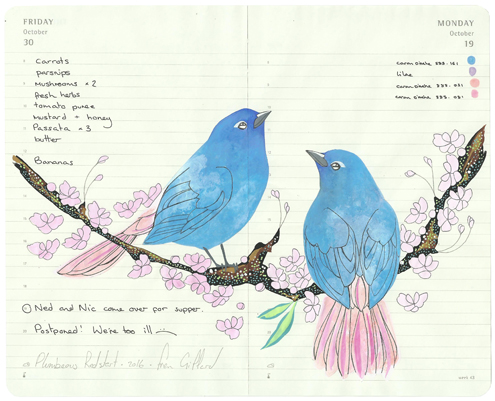 FRIDAY
October
30
Carrots
parsnips
Mushrooms × 2
fresh herbs
tomato puree
Mustard + honey
Passata × 3
butter
Bananas
Ned and Nic come over for supper.
Postponed! We're too ill
Plumbeous Redstart - 2016 - Fran Giffard
MONDAY
October
19
caran d'ache
lilac
caran d'ache
caran d'ache